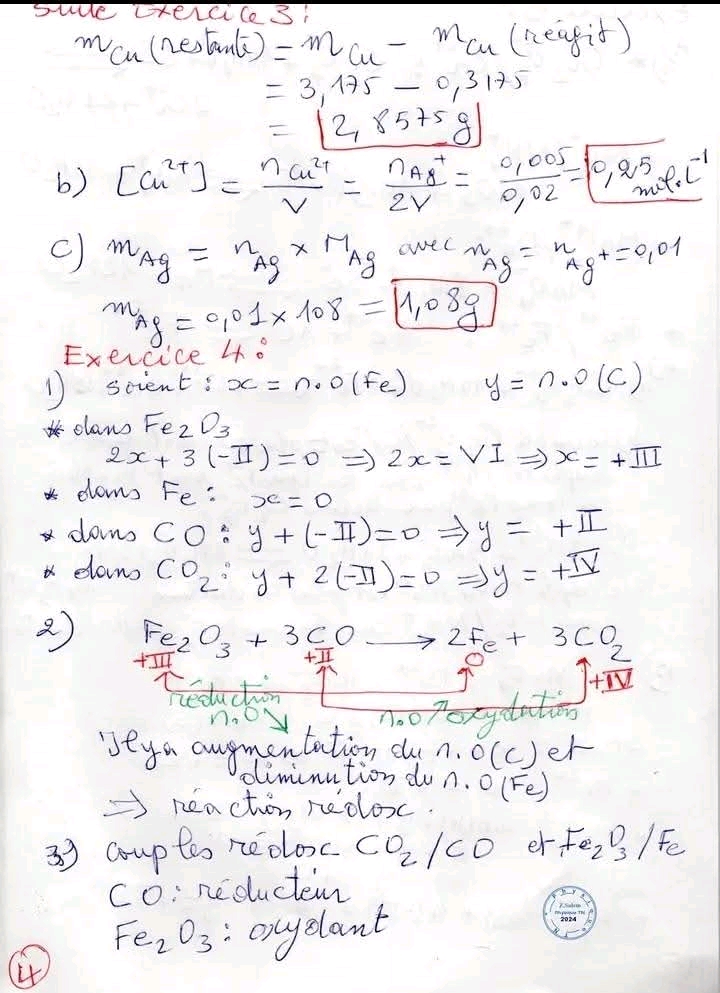 Suite Exercice 3 :
m Cu (restante) = m Cu - m Cu (réagit)
= 3,175 - 0,3175
= 2,8575 g
b) [Cu²⁺] = nCu²⁺/V = nAg⁺/2V = 0,005/0,02 = 0,25 mol.L⁻¹
c) m Ag = n Ag × M Ag avec n Ag = n Ag⁺ = 0,01
m Ag = 0,01 × 108 = 1,08g
Exercice 4 :
1) soient : x = n.o (Fe) y = n.o (C)
* dans Fe₂O₃
2x + 3(-II) = 0 ⇒ 2x = VI ⇒ x = +III
* dans Fe : x = 0
* dans CO : y + (-II) = 0 ⇒ y = +II
* dans CO₂ : y + 2(-II) = 0 ⇒ y = +IV
2) Fe₂O₃ + 3CO → 2Fe + 3CO₂
+III +II 0 +IV
réduction
n.o ↘ n.o ↗ oxydation
Il y a augmentation du n.o (C) et
diminution du n.o (Fe)
⇒ réaction rédox.
3) couples rédox CO₂/CO et Fe₂O₃/Fe
CO : réducteur
Fe₂O₃ : oxydant
2024
4